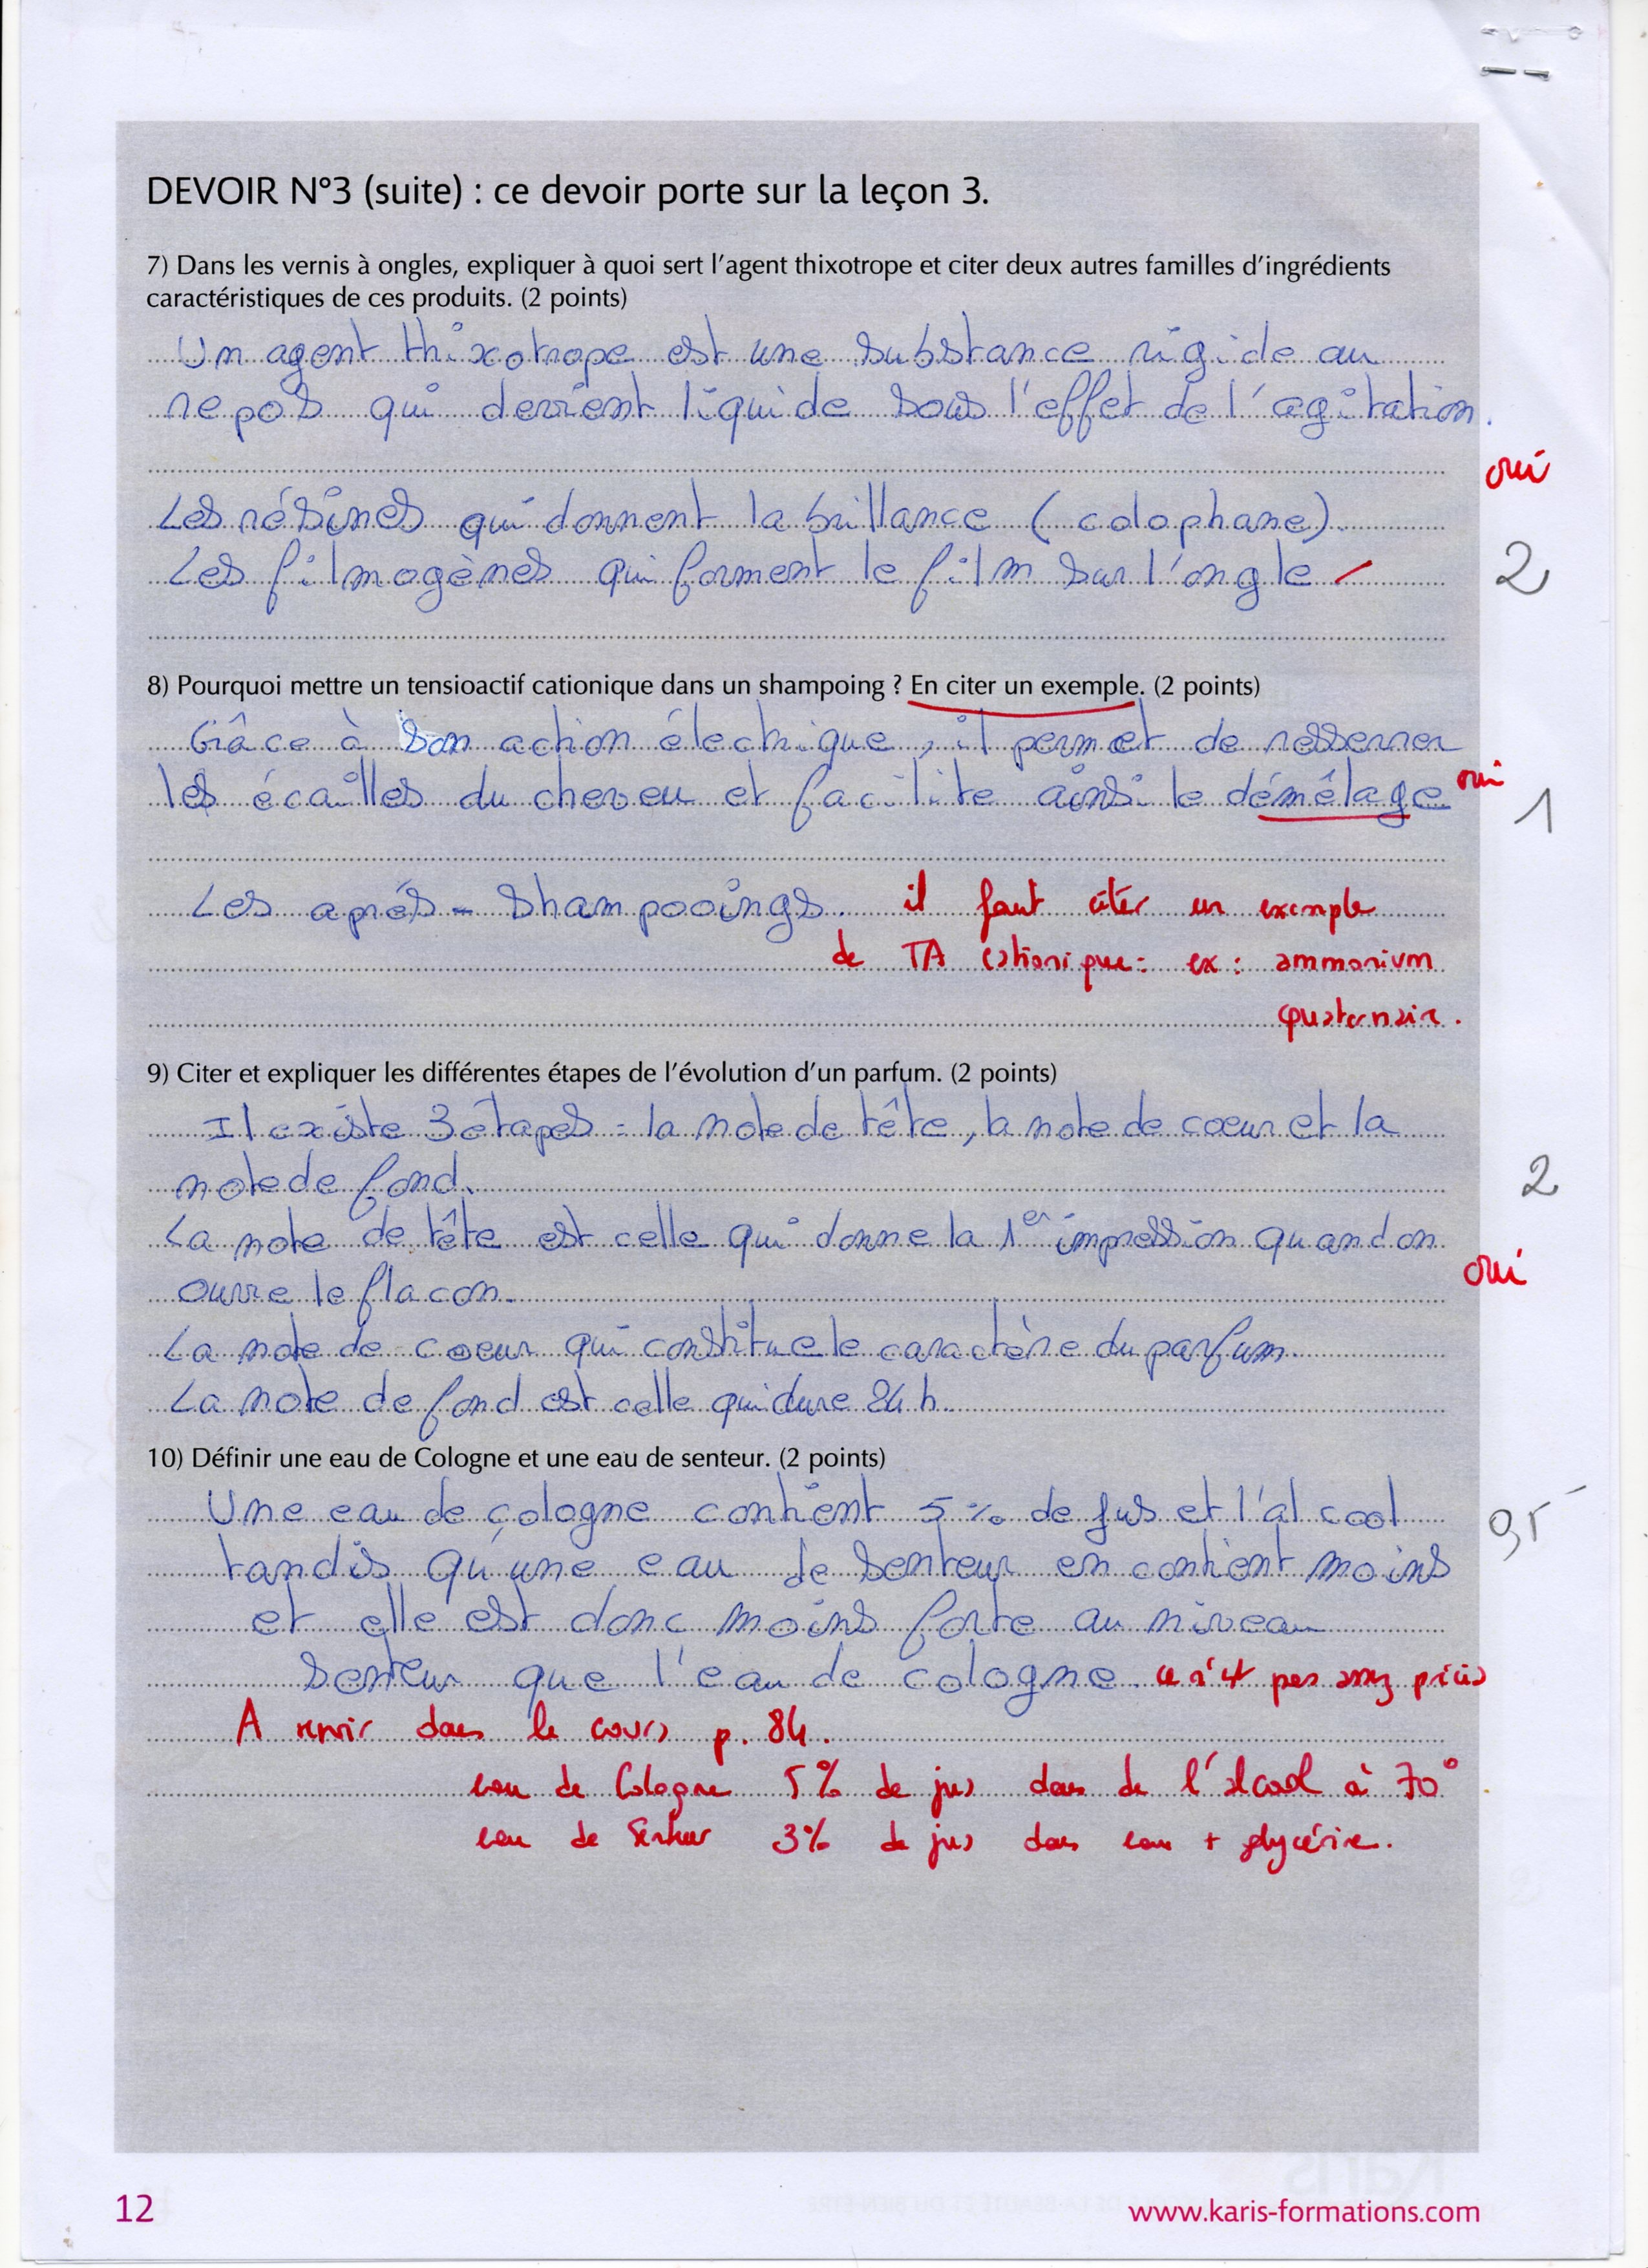 DEVOIR N°3 (suite) : ce devoir porte sur la leçon 3.
7) Dans les vernis à ongles, expliquer à quoi sert l'agent thixotrope et citer deux autres familles d'ingrédients
caractéristiques de ces produits. (2 points)
Un agent thixotrope est une substance rigide au
repos qui devient liquide sous l'effet de l'agitation.
oui
Les résines qui donnent la brillance (colophane).
Les filmogènes qui forment le film sur l'ongle
2
8) Pourquoi mettre un tensioactif cationique dans un shampoing ? En citer un exemple. (2 points)
Grâce à son action électrique, il permet de resserrer
les écailles du cheveu et facilite ainsi le démêlage oui
1
Les après-shampooings. il faut citer un exemple
de TA cationique : ex : ammonium
quaternaire.
9) Citer et expliquer les différentes étapes de l'évolution d'un parfum. (2 points)
Il existe 3 étapes : la note de tête, la note de cœur et la
note de fond.
2
La note de tête est celle qui donne la 1er impression quand on
ouvre le flacon.
oui
La note de coeur qui constitue le caractère du parfum.
La note de fond est celle qui dure 24 h.
10) Définir une eau de Cologne et une eau de senteur. (2 points)
Une eau de cologne contient 5 % de jus et l'alcool
0,5
tandis qu'une eau de senteur en contient moins
et elle est donc moins forte au niveau
senteur que l'eau de cologne. ce n'est pas assez précis
A revoir dans le cours p. 84.
eau de Cologne 5% de jus dans de l'alcool à 70°
eau de Senteur 3% de jus dans eau + glycérine.
12
www.karis-formations.com